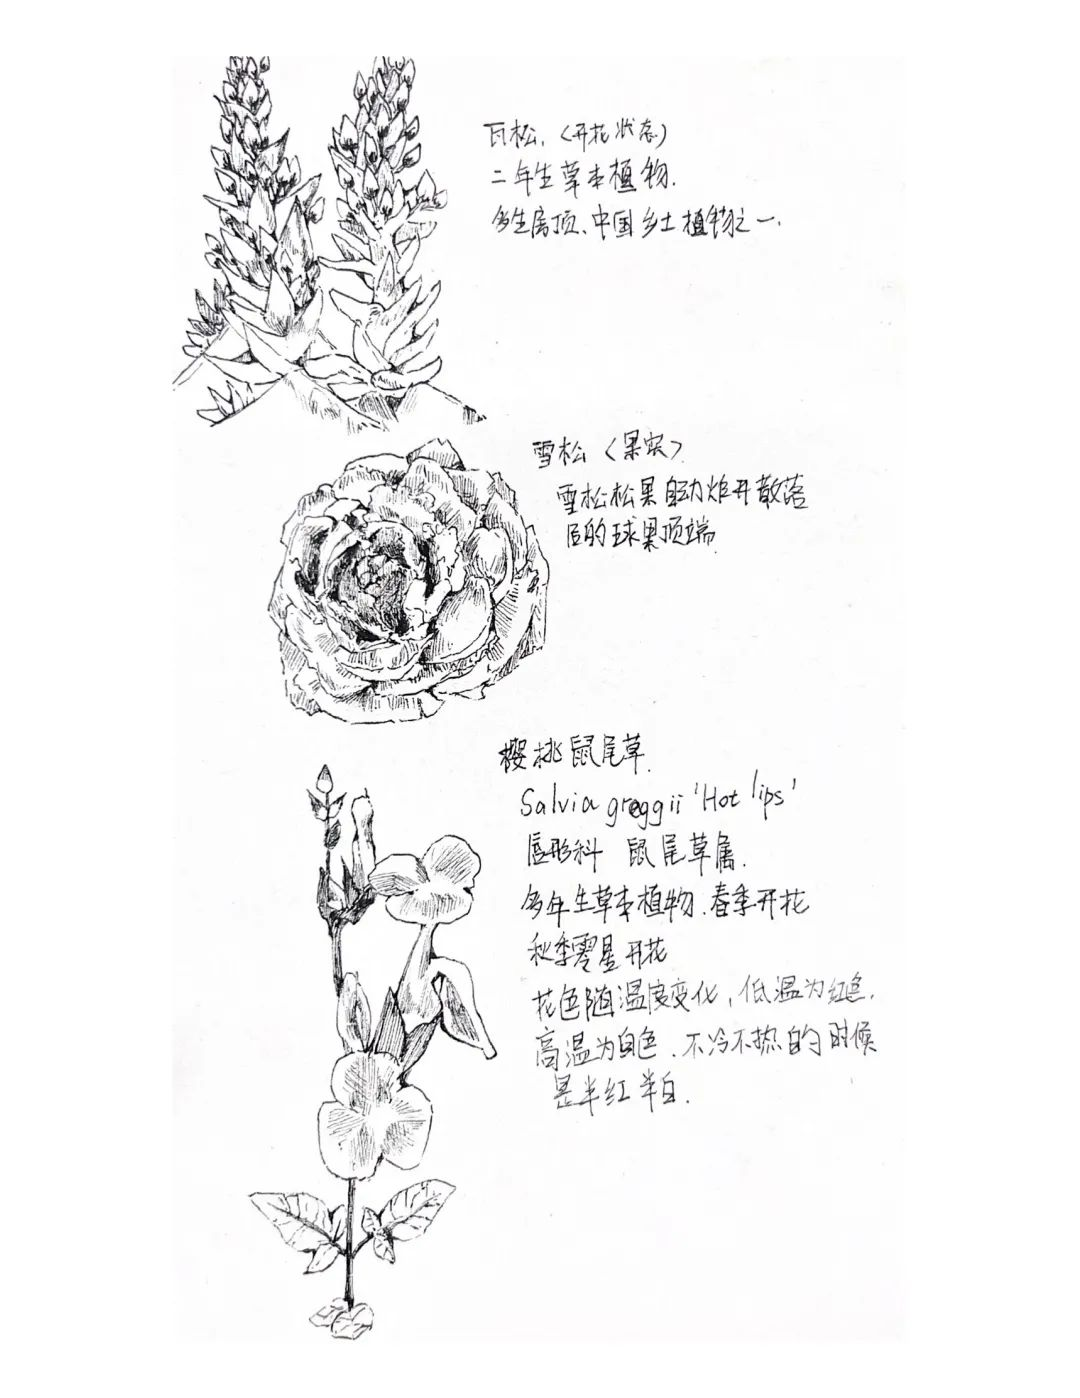 瓦松，〈开花状态〉
二年生草本植物.
多生房顶、中国乡土植物之一.
雪松〈果实〉
雪松松果自动炸开散落
后的球果顶端.
樱桃鼠尾草.
Salvia greggii 'Hot lips'
唇形科 鼠尾草属.
多年生草本植物.春季开花
秋季零星开花
花色随温度变化，低温为红色.
高温为白色.不冷不热的时候
是半红半白.